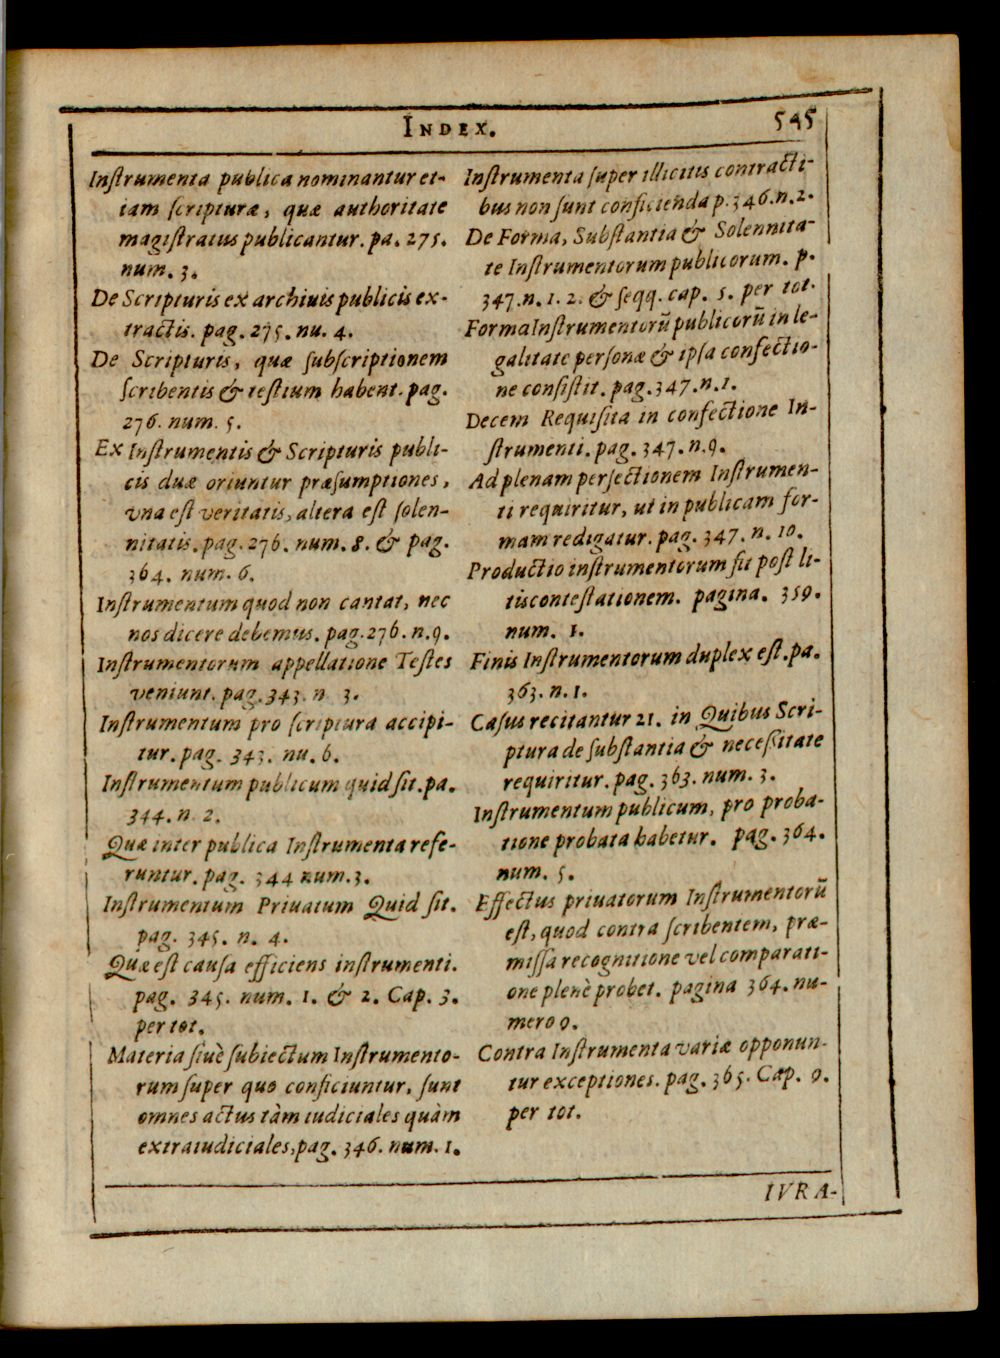 INDEX.
545
Instrumenta publica nominantur et-
iam scripturæ, quæ authoritate
magistratus publicantur. pa. 275.
num. 3.
De Scripturis ex archiuis publicis ex-
tractis. pag. 275. nu. 4.
De Scripturis, quæ subscriptionem
scribentis & testium habent. pag.
276. num. 5.
Ex Instrumentis & Scripturis publi-
cis duæ oriuntur præsumptiones,
vna est veritatis, altera est solen-
nitatis. pag. 276. num. 8. & pag.
364. num. 6.
Instrumentum quod non cantat, nec
nos dicere debemus. pag. 276. n. 9.
Instrumentorum appellatione Testes
veniunt. pag. 343. n 3.
Instrumentum pro scriptura accipi-
tur. pag. 343. nu. 6.
Instrumentum publicum quid sit. pa.
344. n 2.
Quæ inter publica Instrumenta refe-
runtur. pag. 344 num. 3.
Instrumentum Priuatum Quid sit.
pag. 345. n. 4.
Quæ est causa efficiens instrumenti.
pag. 345. num. 1. & 2. Cap. 3.
per tot.
Materia siuè subiectum Instrumento-
rum super quo conficiuntur, sunt
omnes actus tàm iudiciales quàm
extraiudiciales, pag. 346. num. 1.
Instrumenta super illicitis contracti-
bus non sunt conficienda p. 346. n. 2.
De Forma, Substantia & Solennita-
te Instrumentorum publicorum. p.
347. n. 1. 2. & seqq. cap. 5. per tot.
Forma Instrumentorũ publicorũ in le-
galitate personæ & ipsa confectio-
ne consistit. pag. 347. n. 1.
Decem Requisita in confectione In-
strumenti. pag. 347. n. 9.
Ad plenam perfectionem Instrumen-
ti requiritur, ut in publicam for-
mam redigatur. pag. 347. n. 10.
Productio instrumentorum fit post li-
tis contestationem. pagina. 359.
num. 1.
Finis Instrumentorum duplex est. pa.
363. n. 1.
Casus recitantur 21. in Quibus Scri-
ptura de substantia & necessitate
requiritur. pag. 363. num. 3.
Instrumentum publicum, pro proba-
tione probata habetur. pag. 364.
num. 5.
Effectus priuatorum Instrumentorũ
est, quod contra scribentem, præ-
missa recognitione vel comparati-
one plenè probet. pagina 364. nu-
mero 9.
Contra Instrumenta variæ opponun-
tur exceptiones. pag. 365. Cap. 9.
per tot.
IVRA-